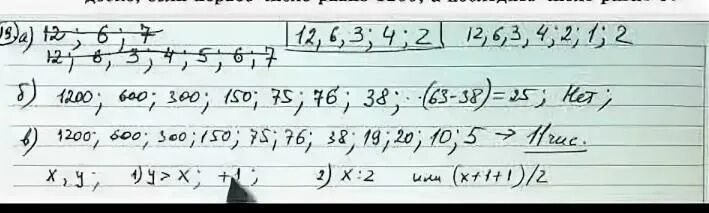 19 а) 12; 6; 7 12, 6, 3; 4; 2 12, 6, 3, 4; 2; 1; 2
12; 6, 3; 4; 5; 6; 7
б) 1200; 600; 300; 150; 75; 76; 38; ··(63-38)=25; Нет;
в) 1200, 600; 300; 150; 75; 76; 38, 19; 20; 10; 5 → 11 чис.
x, y; 1) y > x; +1; 2) x:2 или (x+1+1)/2